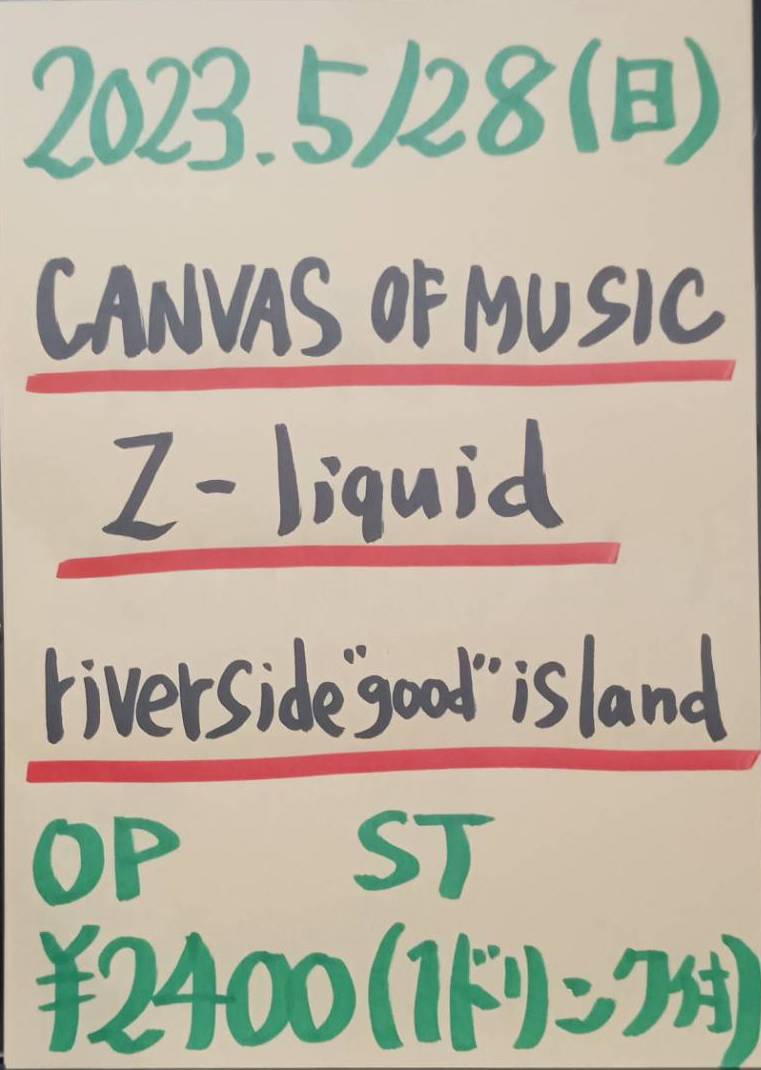 2023.5/28(日)
CANVAS OF MUSIC
Z-liquid
riverside"good"island
OP ST
¥2400(1ドリンク付)